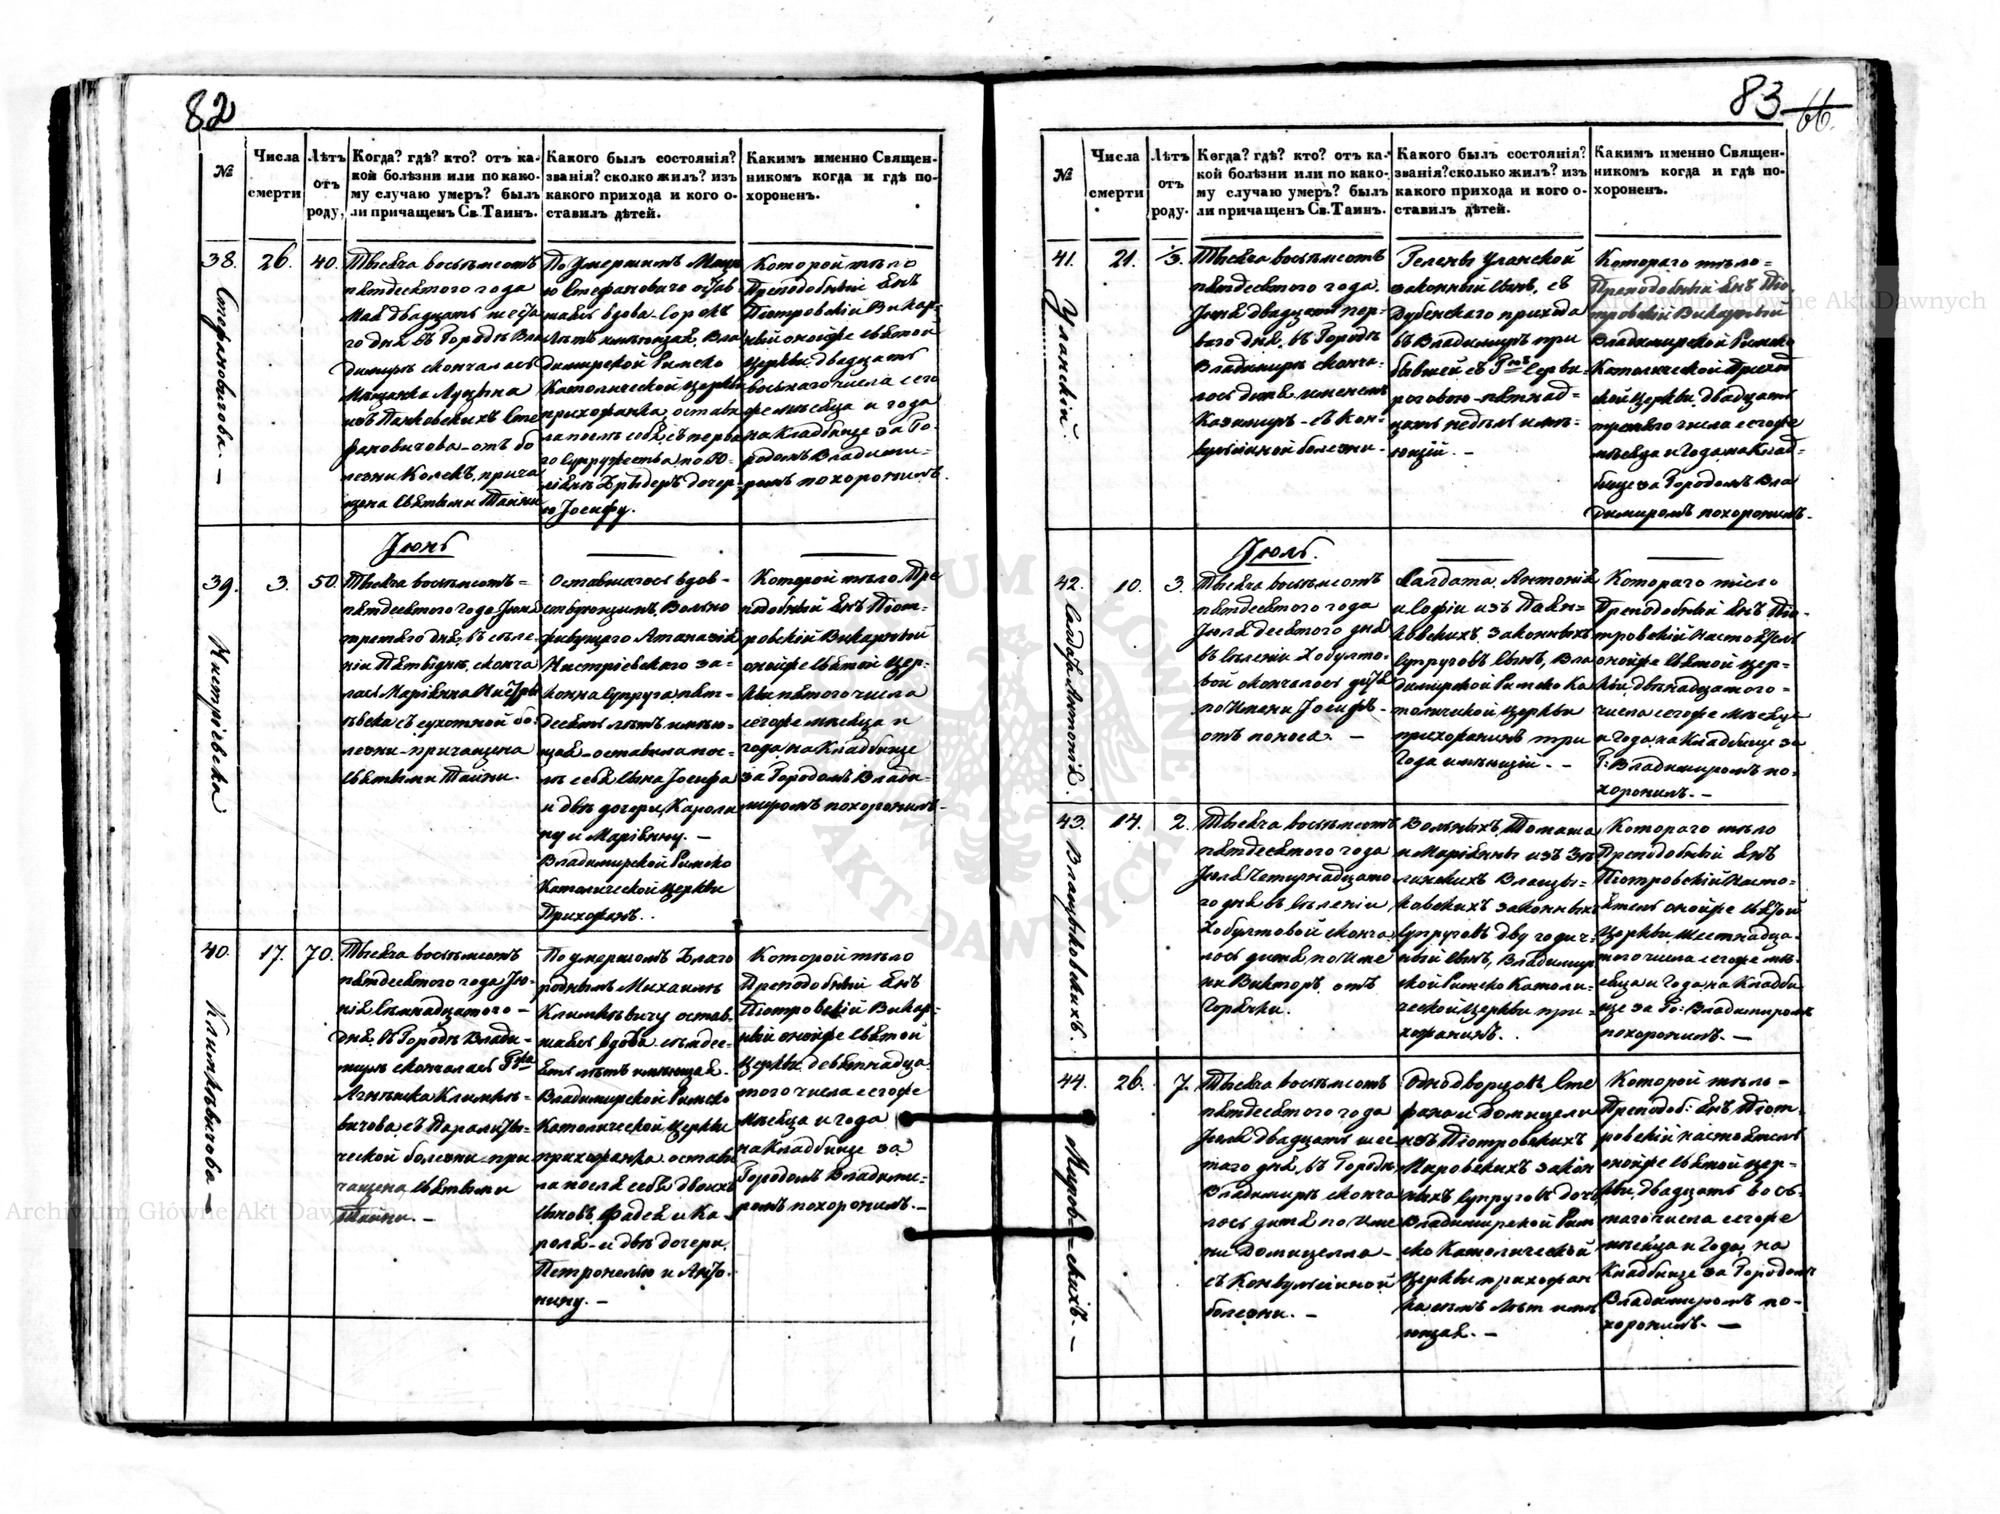 82
№
Числа
смерти
Лѣтъ
отъ
роду,
Когда? гдѣ? кто? отъ ка-
кой болѣзни или по како-
му случаю умеръ? былъ
ли причащенъ Св. Таинъ.
Какого былъ состоянія?
званія? сколко жилъ? изъ
какого прихода и кого о-
ставилъ дѣтей.
Какимъ именно Священ-
никомъ когда и гдѣ по-
хороненъ.
38.
Стефановичова. –
26.
40.
Тысяча восьмсотъ
пятдесятого года
Мая двадцать шеста
го дня въ Городѣ Вла
димирѣ скончалась
Мещанка Луцына
изъ Панковскихъ Сте
фановичова отъ бо
лезни Колекъ, прича
щена Святыми Тайни
По умершимъ
Стефановичѣ остав
шаяся вдова сорокъ
лѣтъ имѣющая, Вла
димирской Римско
Католической Церкви
прихожанка, остави
ла по себѣ съ перва
го супружества
дочер
ю Іосифу.
Которой тѣло
Преподобный Ксн
Піотровскій Викар-
ный онойже Святой
Церкви двадцать
восьмаго числа сего
же мѣсяца и года
на Кладбище за Го-
родомъ Владими-
ромъ похоронилъ.
Іюнь
39.
Нистріевска
3.
50.
Тысяча восьмсотъ=
пятдесятого года Іюня
третяго дня, въ селе-
ніи Пятыдня, сконча
лась Маріянна Нистріе
вска съ сухотной бо-
лезни–причащена
Святыми Тайни.
Оставшагося вдов-
ствующимъ Вольно
живущаго Атаназія
Нистріевскаго за-
конна супруга пят-
десятъ лѣтъ имѣю-
щая–оставила пос-
лѣ себя сына Іосифа
и двѣ дочери, Кароли
ну и Маріянну. –
Владимирской Римско
Католической Церкви
Прихожан.
Которой тѣло Пре
подобный Ксн Піот-
ровскій Викарный
онойже Святой Цер-
кви пятого числа
сегоже мѣсяца и
года на Кладбище
за Городомъ Влади-
миромъ похоронилъ–
40.
Климкѣвичова –
17.
70.
Тысяча восьмсотъ
пятдесятого года Ію-
ня семнадцатого–
дня, въ Городѣ Влади-
мирѣ скончалась Гжа
Агнѣшка Климкѣ-
вичова, съ Паралижи-
ческой болезни при
чащена Святыми
Тайни. –
По умершомъ Благо
родномъ Михаилѣ
Климкѣвичу остав-
шаяся вдова семдес-
ятъ лѣтъ имѣющая.
Владимирской Римско
Католической Церкви
прихожанка остави
ла послѣ себѣ двоихъ
сыновъ, Фадея и Ка-
роля–и двѣ дочери.
Петронелю и Анто-
нину. –
Которой тѣло
Преподобный Ксн
Піотровскій Викар-
ный онойже Святой
Церкви девятнадца-
того числа сегоже
мѣсяца и года
на Кладбище за
Городомъ Владими-
ромъ похоронилъ. –
83
66.
№
Числа
смерти
Лѣтъ
отъ
роду.
Когда? гдѣ? кто? отъ ка-
кой болѣзни или по како-
му случаю умеръ? былъ
ли причащенъ Св. Таинъ.
Какого былъ состоянія?
званія? сколко жилъ? изъ
какого прихода и кого о-
ставилъ дѣтей.
Какимъ именно Священ-
никомъ когда и гдѣ по-
хороненъ.
41.
Уланскій.
21.
Тысяча восьмсотъ
пятдесятого года
Іюня двадцать пер-
ваго дня, въ Городѣ
Владимирѣ сконча-
лось дитя именемъ
Казимиръ–съ Кон-
вулсійной болезни–
Гелены Уланской
законный сынъ, съ
Дубенскаго прихода
въ Владимиръ при
бывшей съ
пятнад-
цать недѣль имѣ-
ющій. –
Котораго тѣло=
Преподобный Ксн Піо-
тровскій Викарный
Владимирской Римско
Католической Приход
ской Церкви, двадцать
третьяго числа сегоже
мѣсяца и Года, на Клад-
бище за Городомъ Вла
димиромъ похоронилъ.
Іюль.
42.
Салдата Антонія.
10.
3.
Тысяча восьмсотъ
пятдесятого года
Іюля десятого дня
въ селеніи Хобулто-
вой скончалось дитя
по имени Іосифъ–
отъ поноса. –
Салдата, Антонія
и Софіи изъ
законныхъ
супруговъ сынъ, Вла
димирской Римско Ка
толической Церкви
прихожанинъ три
Года имѣющій. –
Котораго тѣло
Преподобный Ксн Піо-
тровскій Настоятель
онойже Святой Цер-
кви, двѣнадцатого=
числа сегоже мѣсяца
и Года, на Кладбище за
Г: Владимиромъ по-
хоронилъ. –
43.
14.
2.
Тысяча восьмсотъ
пятдесятого года
Іюля четирнадцато
го дня въ селеніи
Хобултовой сконча
лось дитя, по име
ни Викторъ, отъ
Горячки.
Вольныхъ, Томаша
и Маріянны изъ
законныхъ
супруговъ дву годич-
ный сынъ, Владимир
ской Римско Католи-
ческой Церкви при-
хожанинъ.
Котораго тѣло
Преподобный Ксн
Піотровскій Насто-
ятель онойже Святой
Церкви, шестнадца-
того числа сегоже мѣ-
сяца и Года, на Кладби
ще за Го: Владимиромъ
похоронилъ. –
44.
Мировскихъ. –
26.
7.
Тысяча восьмсотъ
пятдесятого года
Іюля двадцать шес
таго дня, въ Городѣ
Владимирѣ сконча
лось дитя по име
ни Домицелла–
съ Конвулсійной
болезни. –
Однодворцовъ, Сте
фана и Домицели
изъ Піотровскихъ
Мировскихъ закон
ныхъ супруговъ дочь
Владимирской Рим
ско Католической
Церкви прихожан
ка семъ лѣт имѣ
ющая. –
Которой тѣло–
Преподоб: Ксн Піот-
ровскій настоятель
онойже Святой Цер-
кви, двадцать вось-
маго числа сегоже
мѣсяца и Года, на
Кладбище за Городомъ
Владимиромъ по-
хоронилъ. –
ARCHIWUM GŁÓWNE
AKT DAWNYCH
Archiwum Główne Akt Dawnych
Archiwum Główne Akt Dawnych